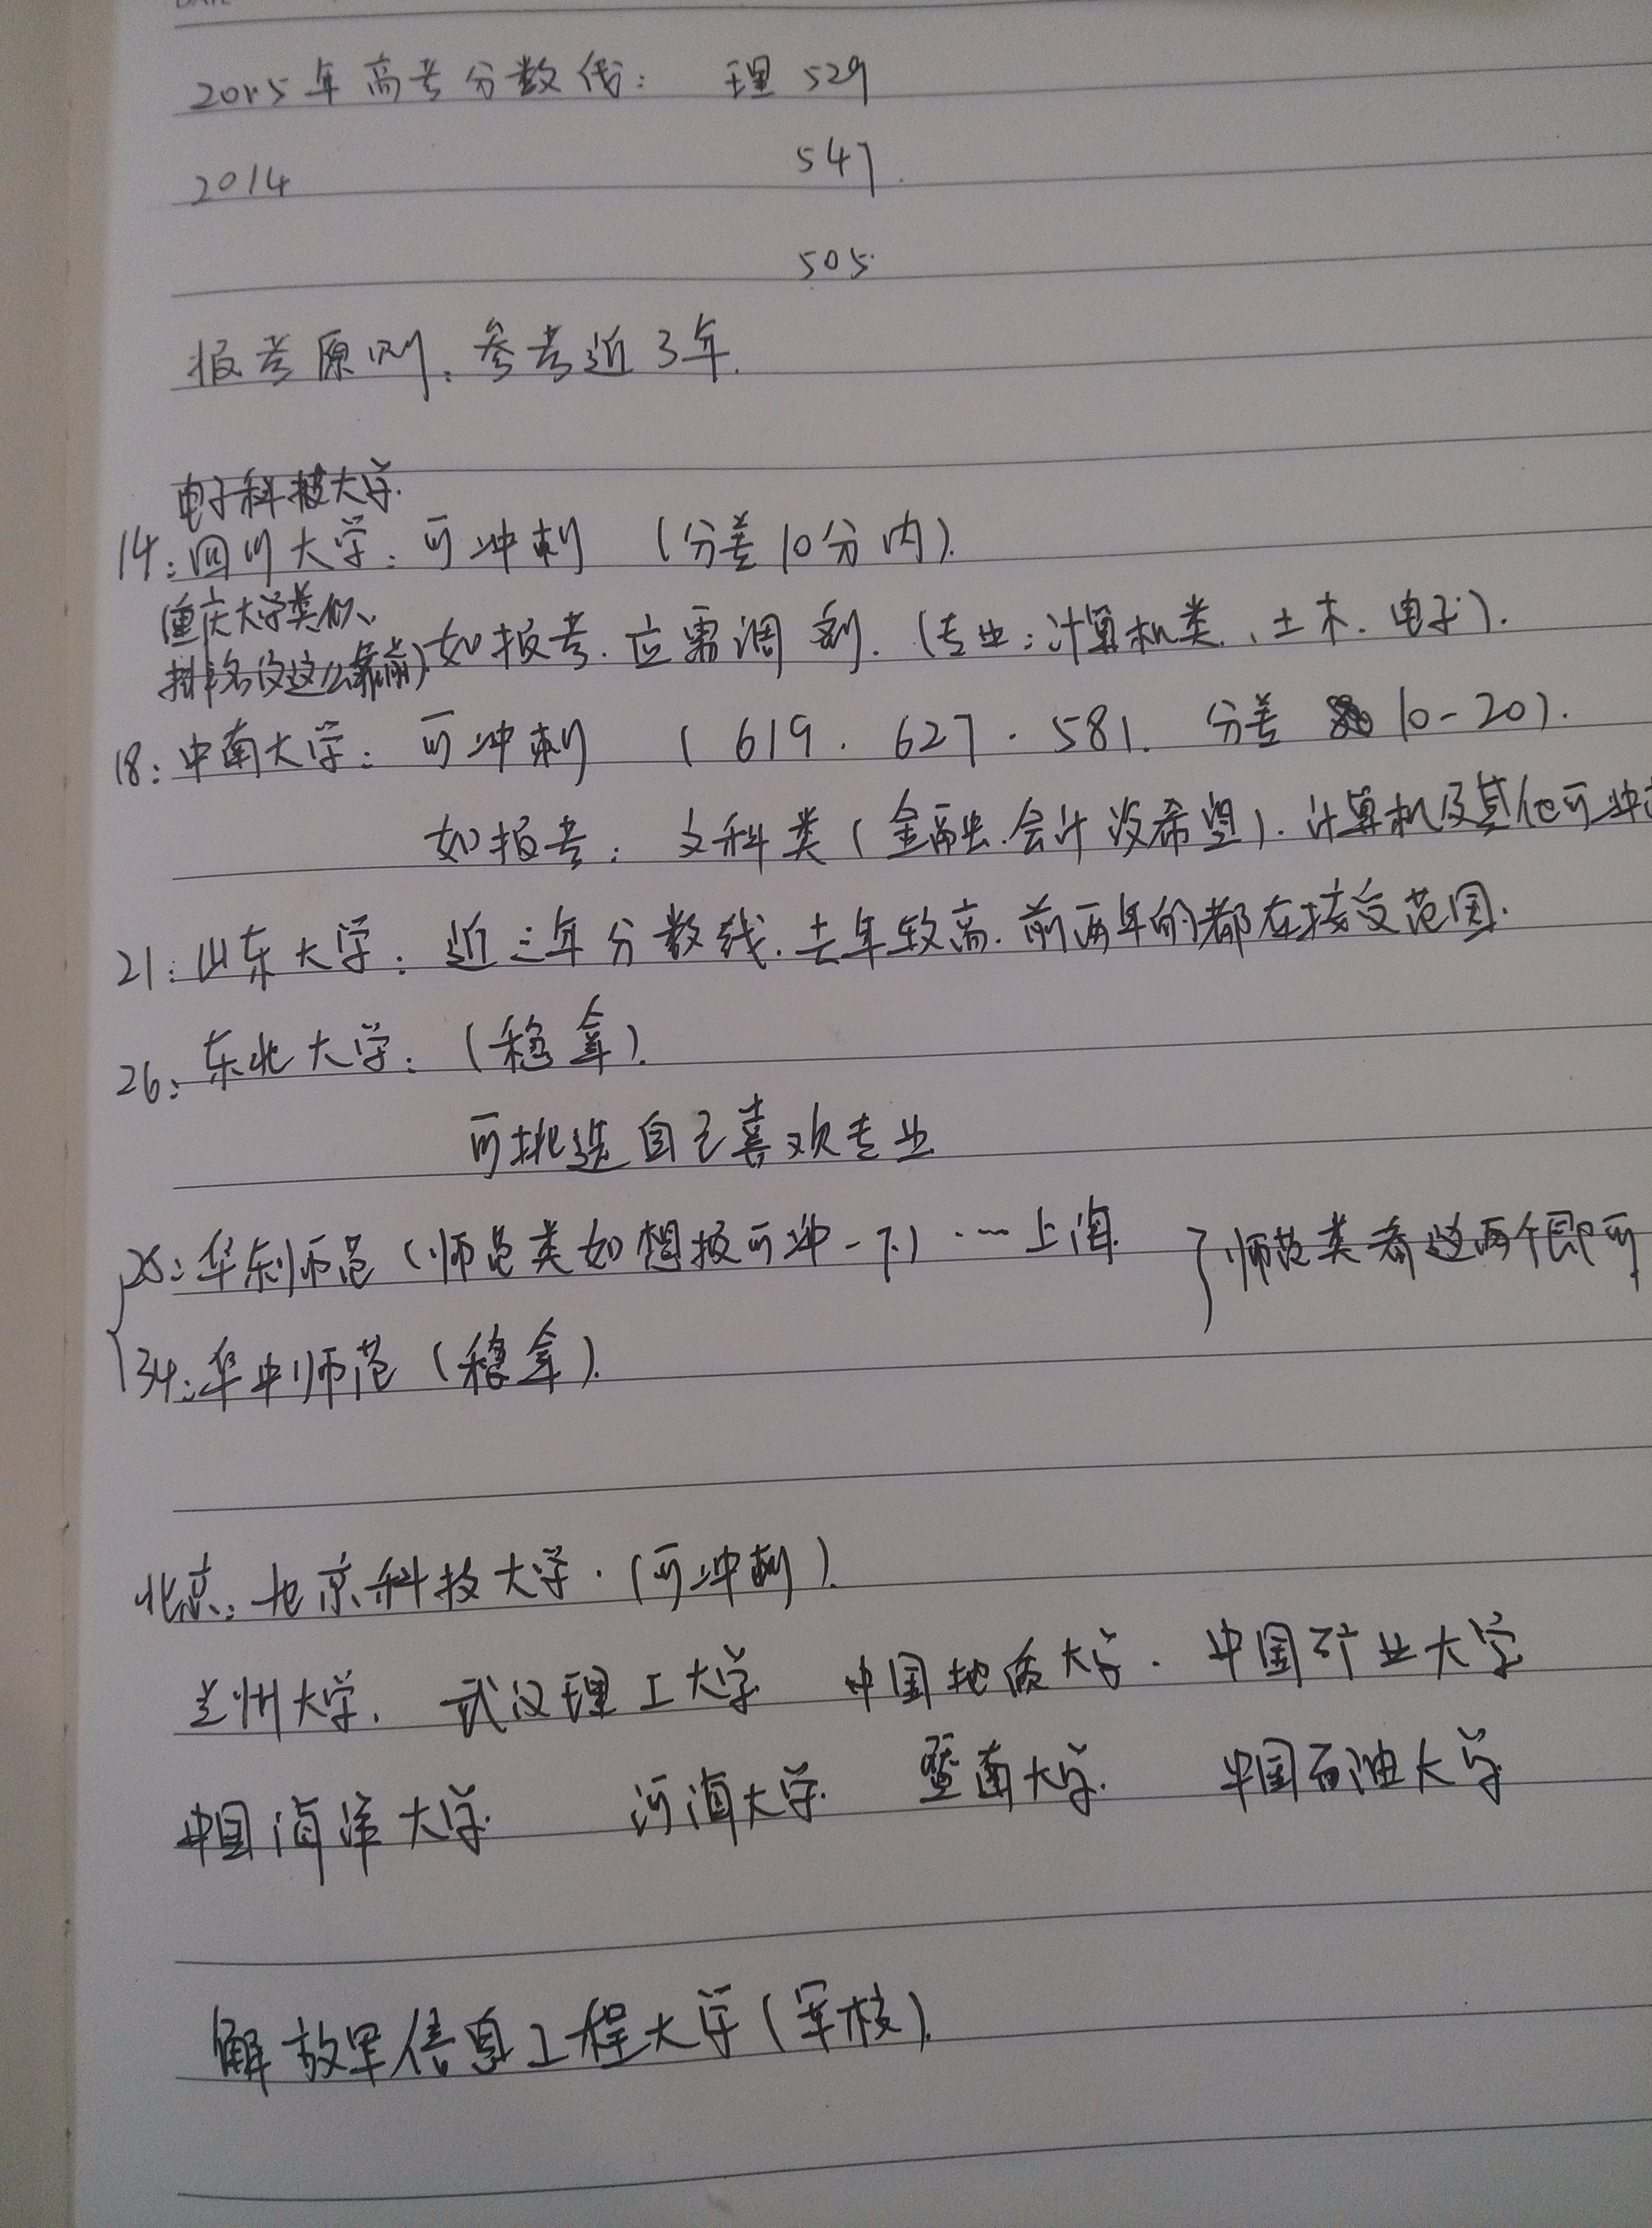 2015年高考分数线: 理 529
2014 547.
505
报考原则:参考近3年.
电子科技大学.
14:四川大学:可冲刺 (分差10分内).
重庆大学类似、
如报考.应需调剂.(专业:计算机类、土木.电子).
排名没这么靠前)
18:中南大学:可冲刺 (619.627.581.分差 10-20).
如报考:文科类(金融.会计没希望).计算机及其他可冲
21:山东大学:近三年分数线.去年较高.前两年的都在接受范围.
26:东北大学:(稳拿).
可挑选自己喜欢专业
25:华东师范(师范类如想报可冲一下)…上海. }师范类看这两个即可
34:华中师范(稳拿).
北京:北京科技大学.(可冲刺).
兰州大学. 武汉理工大学 中国地质大学. 中国矿业大学
中国海洋大学. 河海大学. 暨南大学. 中国石油大学
解放军信息工程大学(军校).